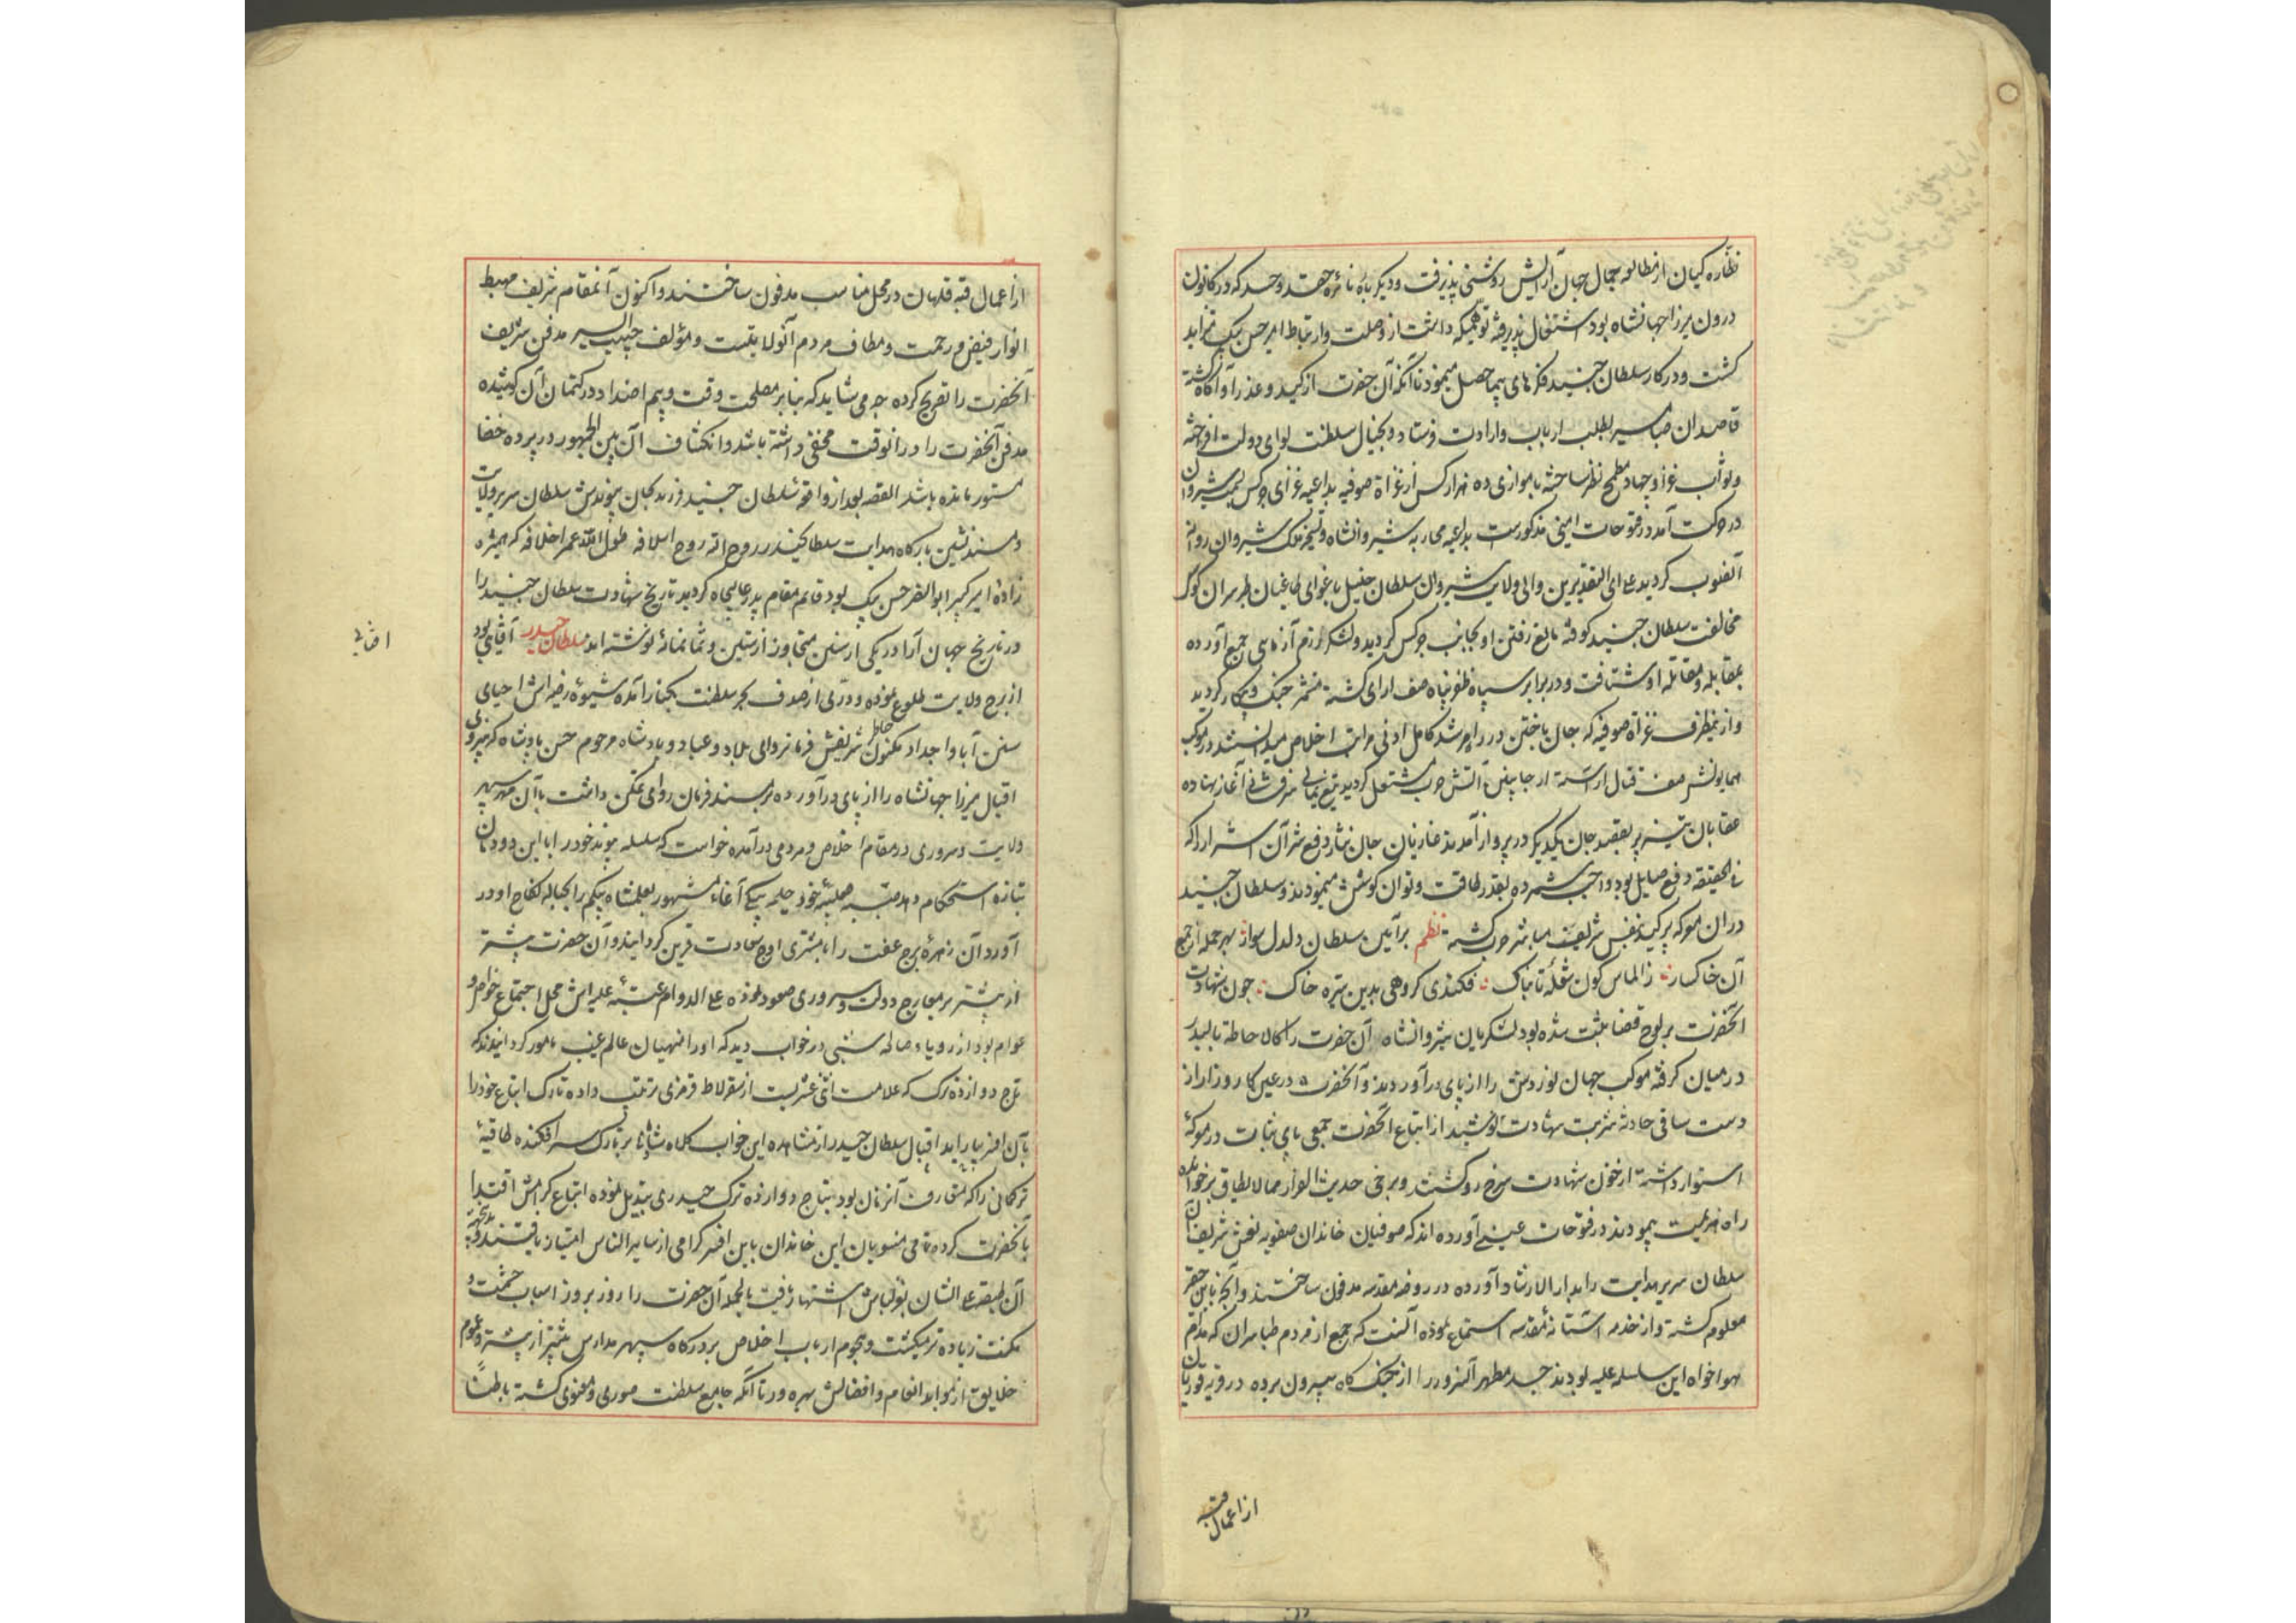 نظاره کیان از مطالعه جمال جهان آرایش روشنی پذیرفت و دیگر باره نائره حقد و حسد که در کانون
درون میرزا جهانشاه بود اشتغال پذیرفته توهمیکه داشت از وصلت و ارتباط امیر حسن بیک تزاید
کشت و در کار سلطان جنید فکرهای بیحاصل مینمود تا آنکه آن حضرت از کید و عذر او آکاه کشته
قاصدان صبا سیر بطلب ارباب وارادت فرستاد و بخیال سلطنت لوای دولت افراخته
و ثواب غزا و جهاد مطمح نظر ساخته با موازی ده هزار کس از غزاة صوفیه بداعیه غزای چرکس بسمت شیروان
در حرکت آمد و در فتوحات امینی مذکورست بداعیه محاربه شیروانشاه و تسخیر ملک شیروان روانه
آنصوب کردید علی ای التقدیرین والی ولایت شیروان سلطان خلیل باغوای طاغیان طبرسران کوک
مخالفت سلطان جنید کوفته مانع رفتن او بجانب چرکس کردید و لشکر رزم آزمای جمع آورده
بمقابله و مقاتله او شتافت و در برابر سپاه ظفر پناه صف آرای کشته مشمر جنک و پیکار کردید
و از ینطرف غزاة صوفیه که جان باختن در راه مرشد کامل ادنی مراتب اخلاص میدانستند در موکب
همایونش صف قتال آراسته از جانبین آتش حرب مشتعل کردید تیغ یمانی سرفشانی آغاز نهاده
عقابان تیز پر بقصد جان یکدیکر در پرواز آمدند غازیان جان نثار دفع شر آن اشرار را که
فی الحقیقه دفع صایل بود واجب شمرده بقدر طاقت و توان کوشش مینمودند و سلطان جنید
در ان معرکه پر کید بنفس شریف مباشر حرب کشته نظم بر آئین سلطان دلدل سوار بهر حمله از جمع
آن خاکسار ز الماس کون شعله تابناک فکندی کروهی بدین تیره خاک چون شهادت
آنحضرت بر لوح قضا ثبت شده بود لشکریان شیروانشاه آن حضرت را کالاحاطة بالبدر
در میان کرفته موکب جهان نوردش را از پای در آوردند و آنحضرت در عین کارزار از
دست ساقی حادثه شربت شهادت نوشید از اتباع آنحضرت جمعی پای ثبات در معرکه
استوار داشته از خون شهادت سرخ رو کشتند و برخی حدیث الفرار مما لا یطاق بر خوانده
راه هزیمت پیمودند در فتوحات عینی آورده اند که صوفیان خاندان صفویه نعش شریف آن
سلطان سریر هدایت را بدار الارشاد آورده در روضه مقدسه مدفون ساختند و آنچه باین حقیر
معلوم کشته و از خدمه آستانه مقدسه استماع نموده آنست که جمع از مردم طبرسران که مدام
هواخواه این سلسله علیه بودند جسد مطهر آنسرور را از جنک کاه بیرون برده در قریه قوریان
از اعمال قبه
از اعمال قبه قلهان در محل مناسب مدفون ساختند و اکنون آنمقام شریف مهبط
انوار فیض و رحمت و مطاف مردم آنولایتست و مؤلف حبیب السیر مدفن شریف
آنحضرت را تصریح کرده چه می شاید که بنابر مصلحت وقت و بیم اضداد در کتمان آن کوشیده
مدفن آنحضرت را در آنوقت مخفی داشته باشد و انکشاف آن بین الجمهور در پرده خفا
مستور مانده باشد القصه بعد از واقعه سلطان جنید فرزند بجان پیوندش سلطان سریر ولایت
و مسند نشین بارکاه هدایت سلطان حیدر روح الله روح اسلافه و طول الله عمر اخلافه که همشیره
زاده امیر کبیر ابو النصر حسن بیک بود قائم مقام پدر عالیجاه کردید تاریخ شهادت سلطان جنید را
در تاریخ جهان آرا در یکی از سنین متجاوز از ستین و ثمانمائه نوشته اند سلطان حیدر آفتابی بود
افتابی
از برج ولایت طلوع نموده و دری از صدف بحر سلطنت بکنار آمده شیوه رضیه اش احیای
سنن آبا و اجداد مکنون خاطر شریفش فرمانروائی بلاد و عباد و پادشاه مرحوم حسن پادشاه که به نیروی
اقبال میرزا جهانشاه را از پای در آورده بر مسند فرمان روائی تمکن داشت با آن مهر سپهر
ولایت و سروری در مقام اخلاص و مردمی در آمده خواست که سلسله پیوند خود را با این دودمان
تازه استحکام دهد صبیه صلبیه خود حلیمه بیکی آغا مشهور بعلمشاه بیکم را بحباله نکاح او در
آورد آن زهره برج عفت را با مشتری اوج سعادت قرین کردانید و آن حضرت پیشتر
از پیشتر بر معارج دولت و سروری صعود نموده علی الدوام عتبه علیه اش محل اجتماع خواص و
عوام بود از رویاء صالحه شبی در خواب دید که او را منهیان عالم غیب مامور کردانیدند که
تاج دوازده ترک که علامت اثنی عشریست از سقرلاط قرمزی ترتیب داده تارک اتباع خود را
بآن افسر بیاراید اقبال سلطان حیدر از مشاهده این خواب کلاه شادمانی بر تارک سر افکنده طاقیه
ترکمانی را که متعارف آنزمان بود بتاج دوازده ترک حیدری تبدیل نموده اتباع کرامش اقتدا
بآنحضرت کرده تمامی منسوبان این خاندان باین افسر کرامی از سایر الناس امتیاز یافتند و بدینجهة
آن طبقه علیه الشان بقزلباش اشتهار یافت بالجمله آن حضرت را روز بروز اسباب حشمت و
مکنت زیاده تر میکشت و هجوم ارباب اخلاص بر درکاه سپهر مدارس بیشتر از پیشتر و عموم
خلایق از مواید انعام و افضالش بهره ور تا آنکه جامع سلطنت صوری و معنوی کشته باطناً